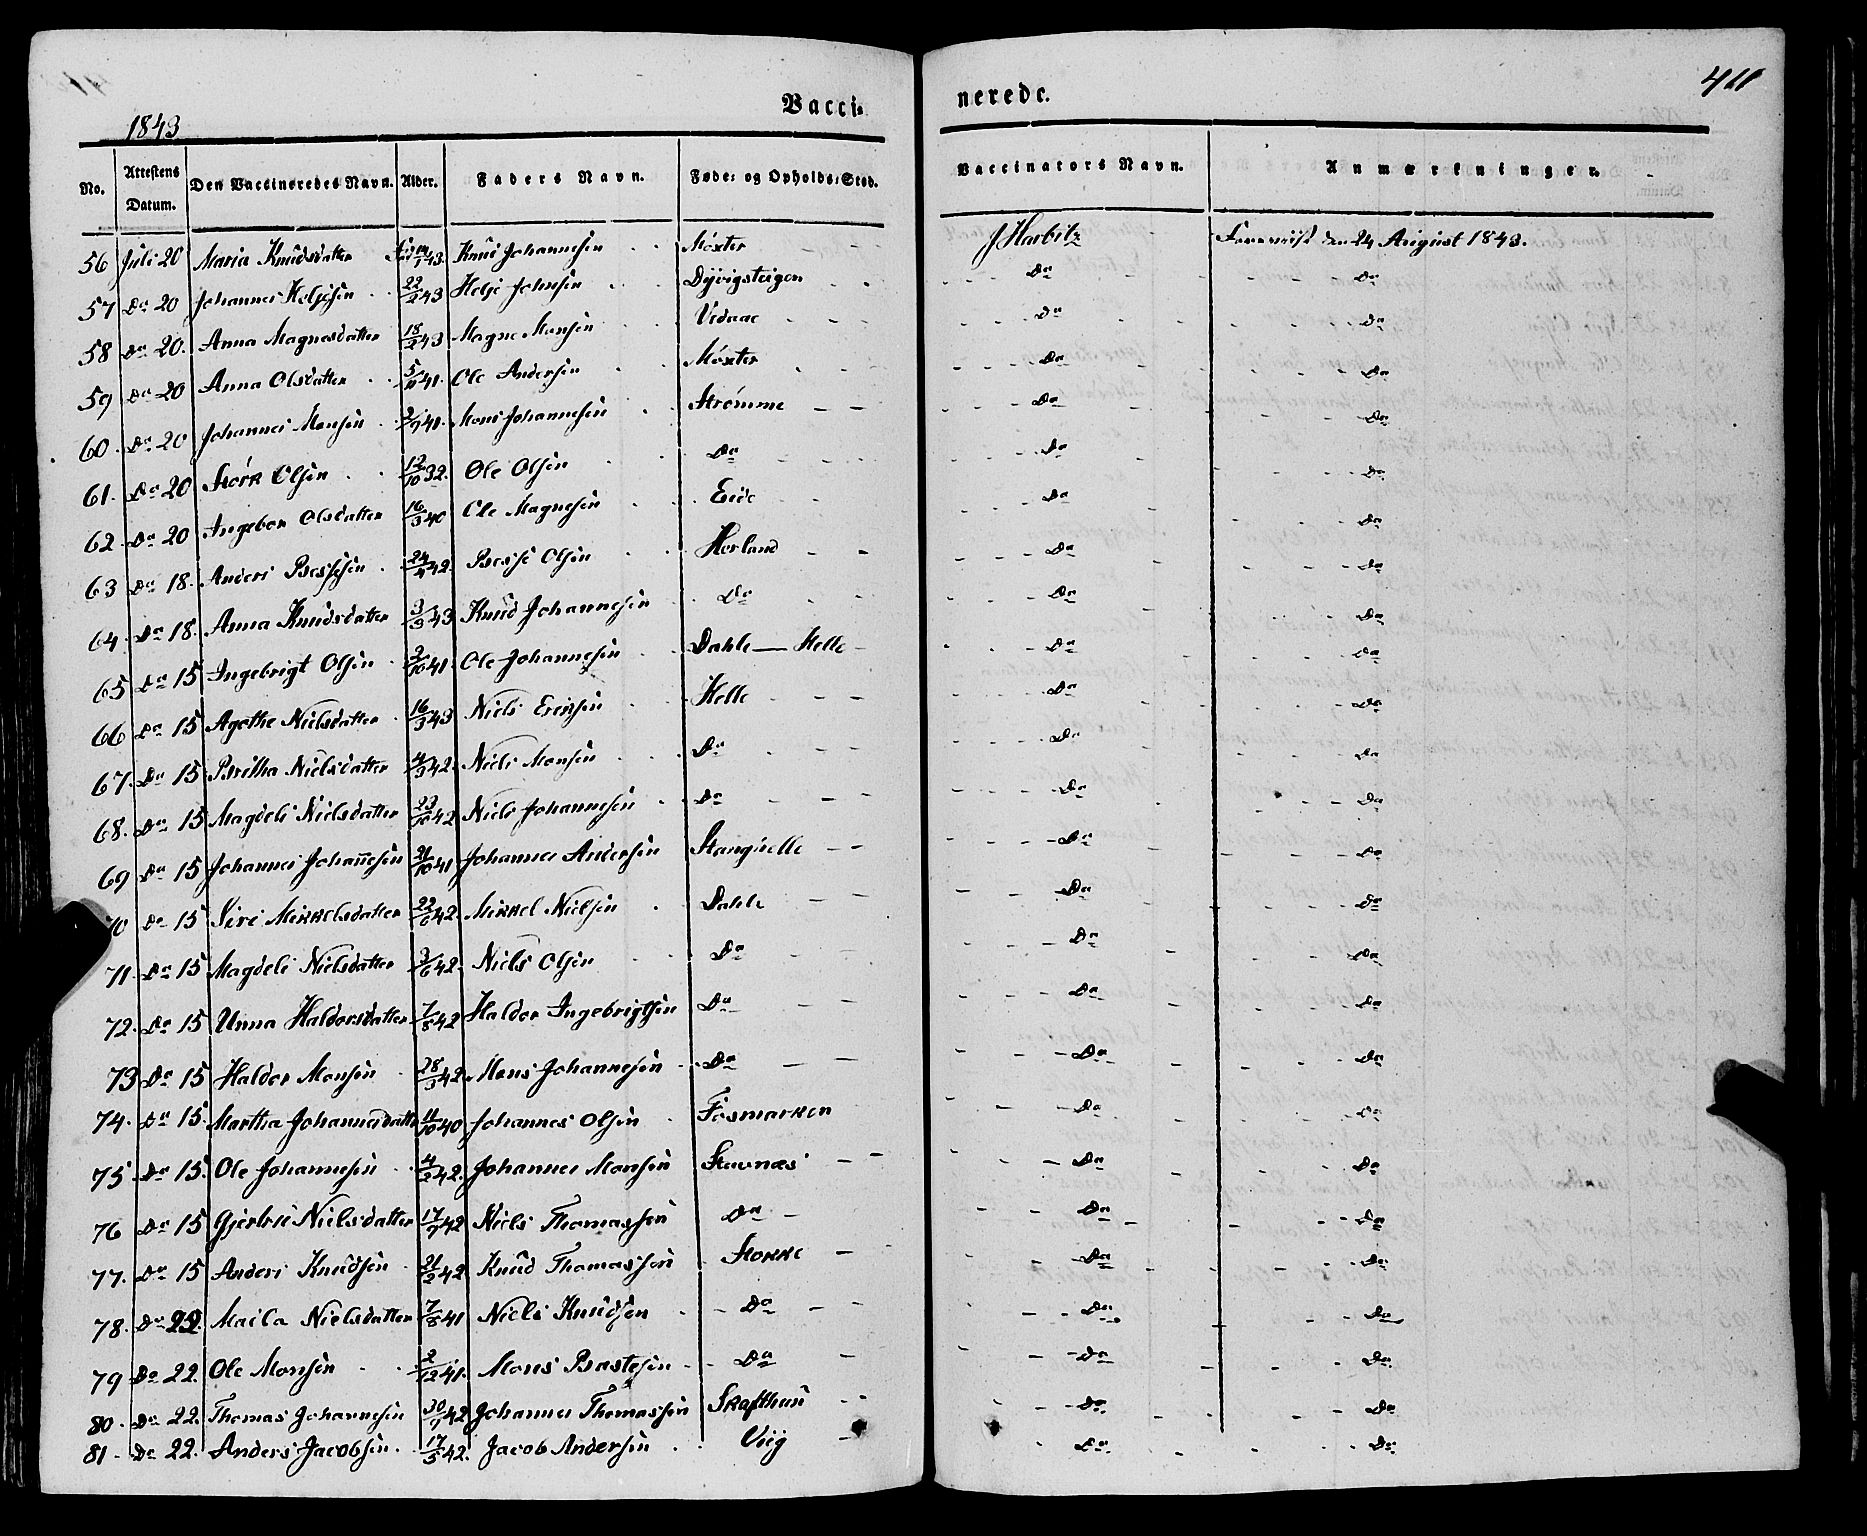 Vacci- nerede. 411
1843
No. Attestens Datum. Den Vaccineredes Navn. Alder. Faders Navn. Føde- og Opholds-Sted. Vaccinators Navn. Anmærkninger.
56 Juli 20 Maria Knudsdatter 43. Knud Johannesen Møxter J Harbitz Foreviist den 24 August 1843.
57 Do 20 Johannes Heljesen 22/2 43 Helje Johnsen Dyvigsteigen Do Do
58 Do 20. Anna Magnesdatter 18/2 43 Magne Monsen Vedaae Do Do
59 Do 20 Anna Olsdatter 5/11 41. Ole Andersen Møxter Do Do
60. Do 20 Johannes Monsen 41. Mons Johannesen Strømme Do Do
61. Do 20 Størk Olsen 12/10 32. Ole Olsen Do Do Do
62. Do 20 Ingebor Olsdatter 16/3 40 Ole Magnesen Eide Do Do
63 Do 18. Anders Bressesen 24/4 42. Bresse Olsen Horland Do Do
64. Do 18. Anna Knudsdatter 3/3 43 Knud Johannesen Do Do Do
65 Do 15 Ingebrigt Olsen 2/10 41. Ole Johannesen Dahle — Helle Do Do
66 Do 15 Agathe Nielsdatter 16/3 43 Niels Ericksen Helle Do Do
67. Do 15 Britha Nielsdatter 42. Niels Monsen Do Do Do
68. Do 15 Magdeli Nielsdatter 23/10 42 Niels Johannesen Do Do Do
69 Do 15 Johannes Johannesen 21/10 41 Johannes Andersen Stangielle Do Do
70 Do 15 Siri Mikkelsdatter 22/6 42. Mikkel Nielsen Dahle Do Do
71. Do 15 Magdeli Nielsdatter 3/6 42. Niels Olsen Do Do Do
72. Do 15 Unna Haldorsdatter 7/8 42 Haldor Ingebrigtsen Do Do Do
73 Do 15 Haldor Monsen 28/3 42. Mons Johannesen Do Do Do
74. Do 15. Martha Johannesdatter 11/10 40 Johannes Olsen Fosmarken Do Do
75 Do 15. Ole Johannesen 4/2 42. Johannes Monsen Stavnæs Do Do
76 Do 15 Gjertrü Nielsdatter 17/9 42 Niels Thomassen Do Do Do
77. Do 15 Anders Knudsen 21/2 42 Knud Thomassen Stokke Do Do
78. Do 22. Maila Nielsdatter 7/8 41 Niels Knudsen Do Do Do
79 Do 22. Ole Monsen 2/12 41. Mons Brastesen Do Do Do
80. Do 22. Thomas Johannesen 30/7 42 Johannes Thomassen Skafthun Do Do
81. Do 22. Anders Jacobsen 17/5 42. Jacob Andersen Viig Do Do